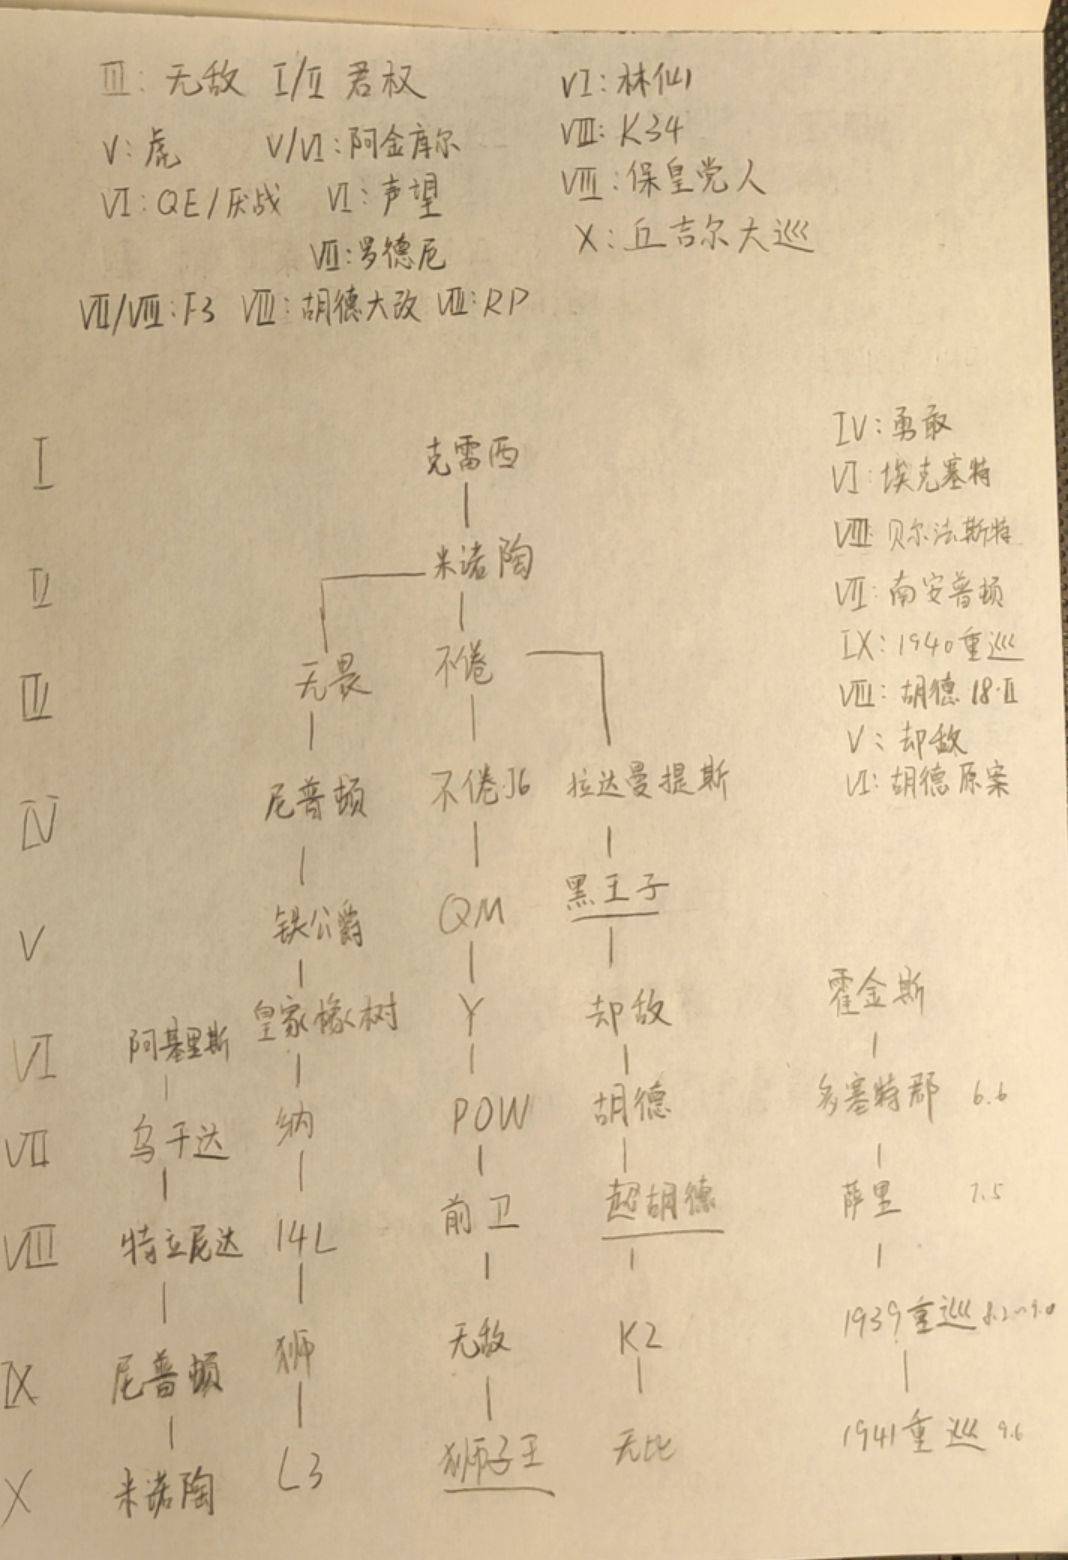 III: 无敌 I/II 君权 VI:林仙
V:虎 V/VI:阿金库尔 VIII: K34
VI:QE/厌战 VI:声望 VIII:保皇党人
VII:罗德尼 X:丘吉尔大巡
VII/VIII:F3 VIII:胡德大改 VII:RP
IV:勇敢
I 克雷西
VI:埃克塞特
VIII:贝尔法斯特
II 米诺陶
VII:南安普顿
IX:1940重巡
III 无畏 不倦
VIII:胡德18·II
V:却敌
VI:胡德原案
IV 尼普顿 不倦J6 拉达曼提斯
V 铁公爵 QM 黑王子
VI 阿基里斯 皇家橡树 Y 却敌 霍金斯
VII 乌干达 纳 POW 胡德 多塞特郡 6.6
VIII 特立尼达 14L 前卫 超胡德 萨里 7.5
IX 尼普顿 狮 无敌 K2 1939重巡 8.2~9.0
X 米诺陶 L3 狮子王 无比 1941重巡 9.6